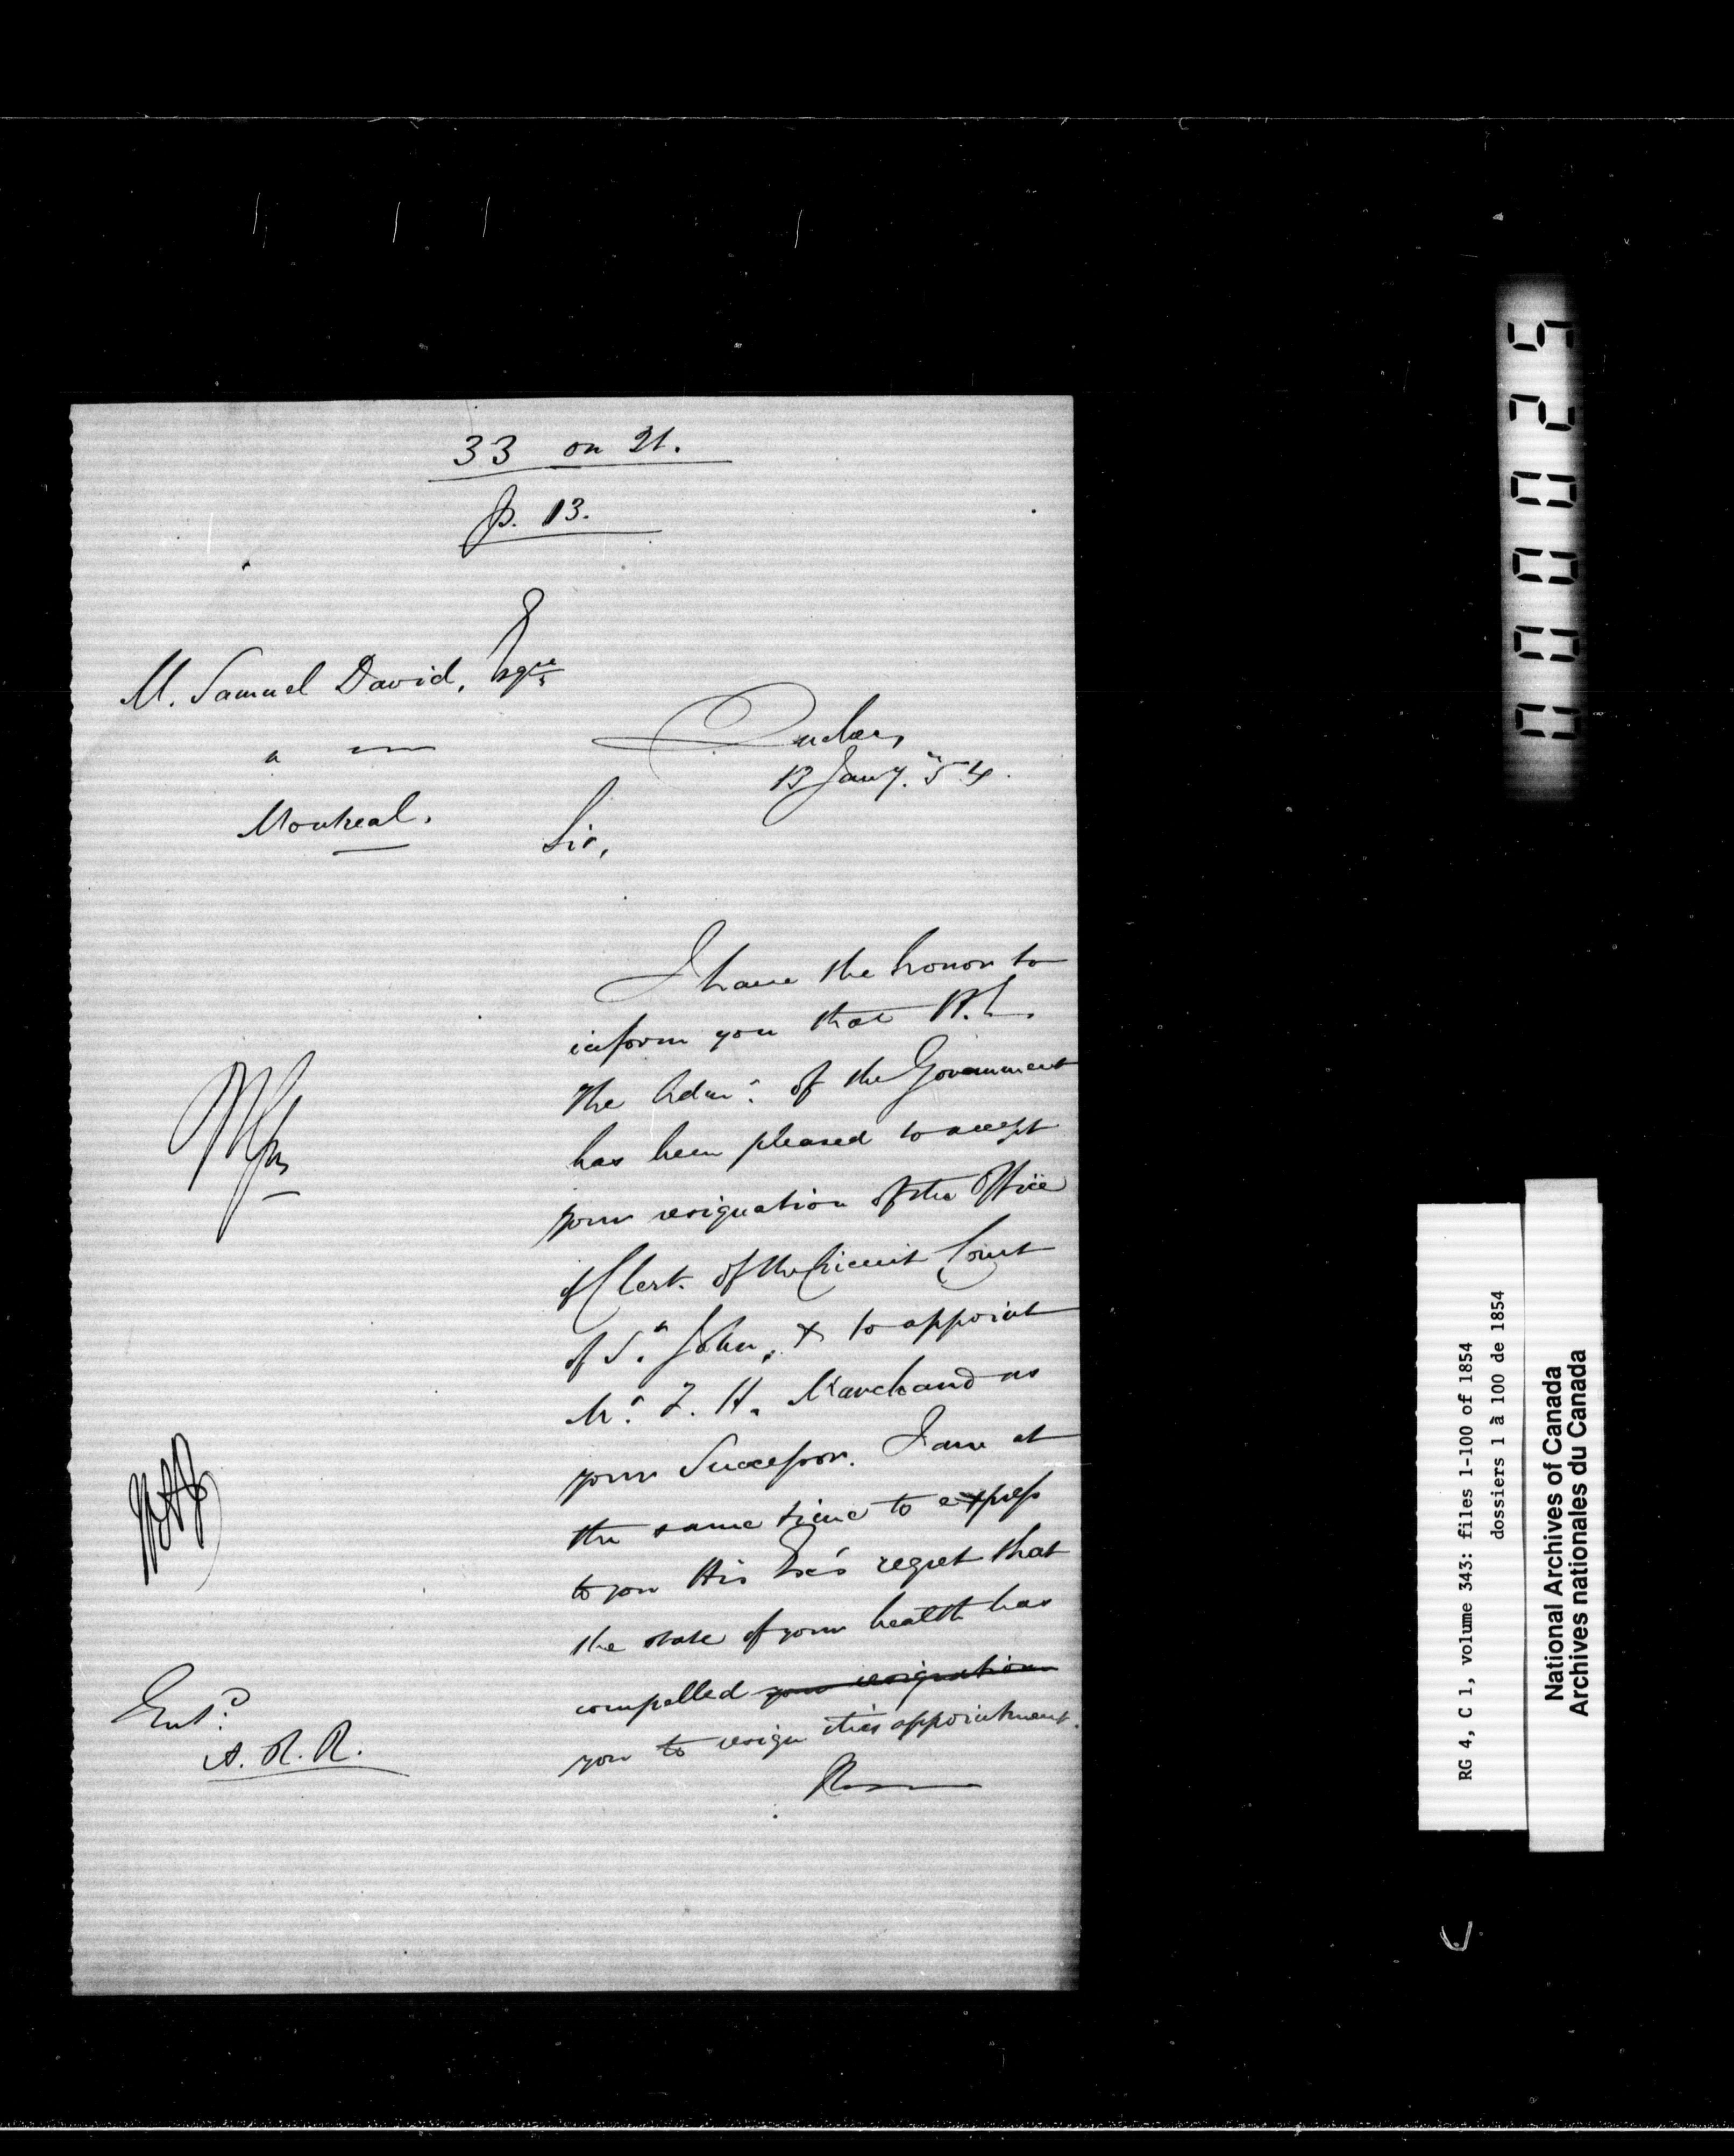 33 on 21.
p. 13.
M. Samuel David, Esqre
Montreal.
Quebec,
13 Jany. '54.
Sir,
I have the honor to
inform you that H. E.
the Admr. of the Government
has been pleased to accept
your resignation of the Office
of Clerk of the Circuit Court
of St. John, & to appoint
Mr. F. H. Marchand as
your Successor. I am at
the same time to express
to you His Exc's regret that
the state of your health has
compelled your resignation
you to resign this appointment.
Entd.
A. R. R.
000025
RG 4, C 1, volume 343: files 1-100 of 1854
dossiers 1 à 100 de 1854
National Archives of Canada
Archives nationales du Canada